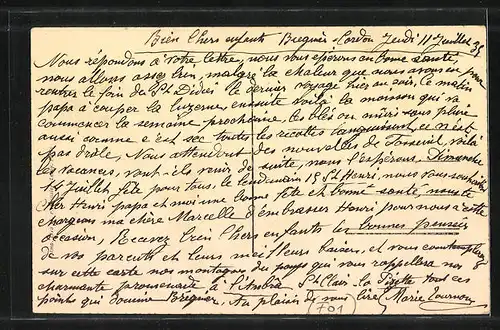 Bien Chers enfants Brégnier-Cordon Jeudi 11 Juillet 35
Nous répondons à votre lettre, nous vous espérons en bonne santé,
nous allons assez bien, malgré la chaleur que nous avons eu pour
rentrer le foin de St Didier le dernier voyage hier au soir, le matin
papa a couper la luzerne ensuite voilà la moisson qui va
commencer la semaine prochaine, les blés ou mûrs sous pluie
aussi comme c'est sec toutes les récoltes languissent, ce n'est
pas drôle, Nous attendons des nouvelles de, voilà
les vacances, vont-ils venir de suite, nous l'espérons. Dimanche
14 Juillet fête pour tous, le lendemain 15 St Henri, nous vous souhaitons
Cher Henri papa et moi une bonne fête et bonne santé nous te
chargeons ma chère Marcelle d'embrasser Henri pour nous à cette
occasion, Recevez bien Chers enfants les bonnes pensées
de vos parents et leurs meilleurs baisers, et vous
sur cette carte nos montagnes du pays qui vous rappellera nos
charmante promenade à St Clair la tout ces
points qui domine Brégnier. Au plaisir de vous lire Marie
701